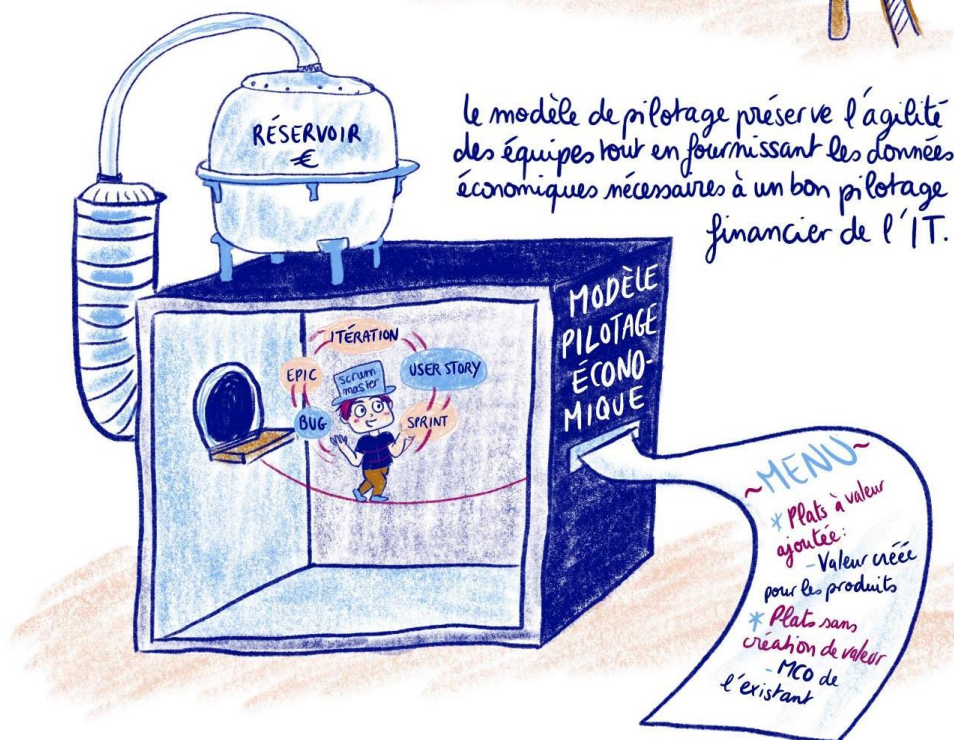 RÉSERVOIR
€
le modèle de pilotage préserve l'agilité
des équipes tout en fournissant les données
économiques nécessaires à un bon pilotage
financier de l'IT.
MODÈLE
PILOTAGE
ÉCONO-
MIQUE
ITÉRATION
EPIC
scrum
master
USER STORY
BUG
SPRINT
~MENU~
* Plats à valeur
ajoutée:
- Valeur créée
pour les produits
* Plats sans
création de valeur
- MCO de
l'existant